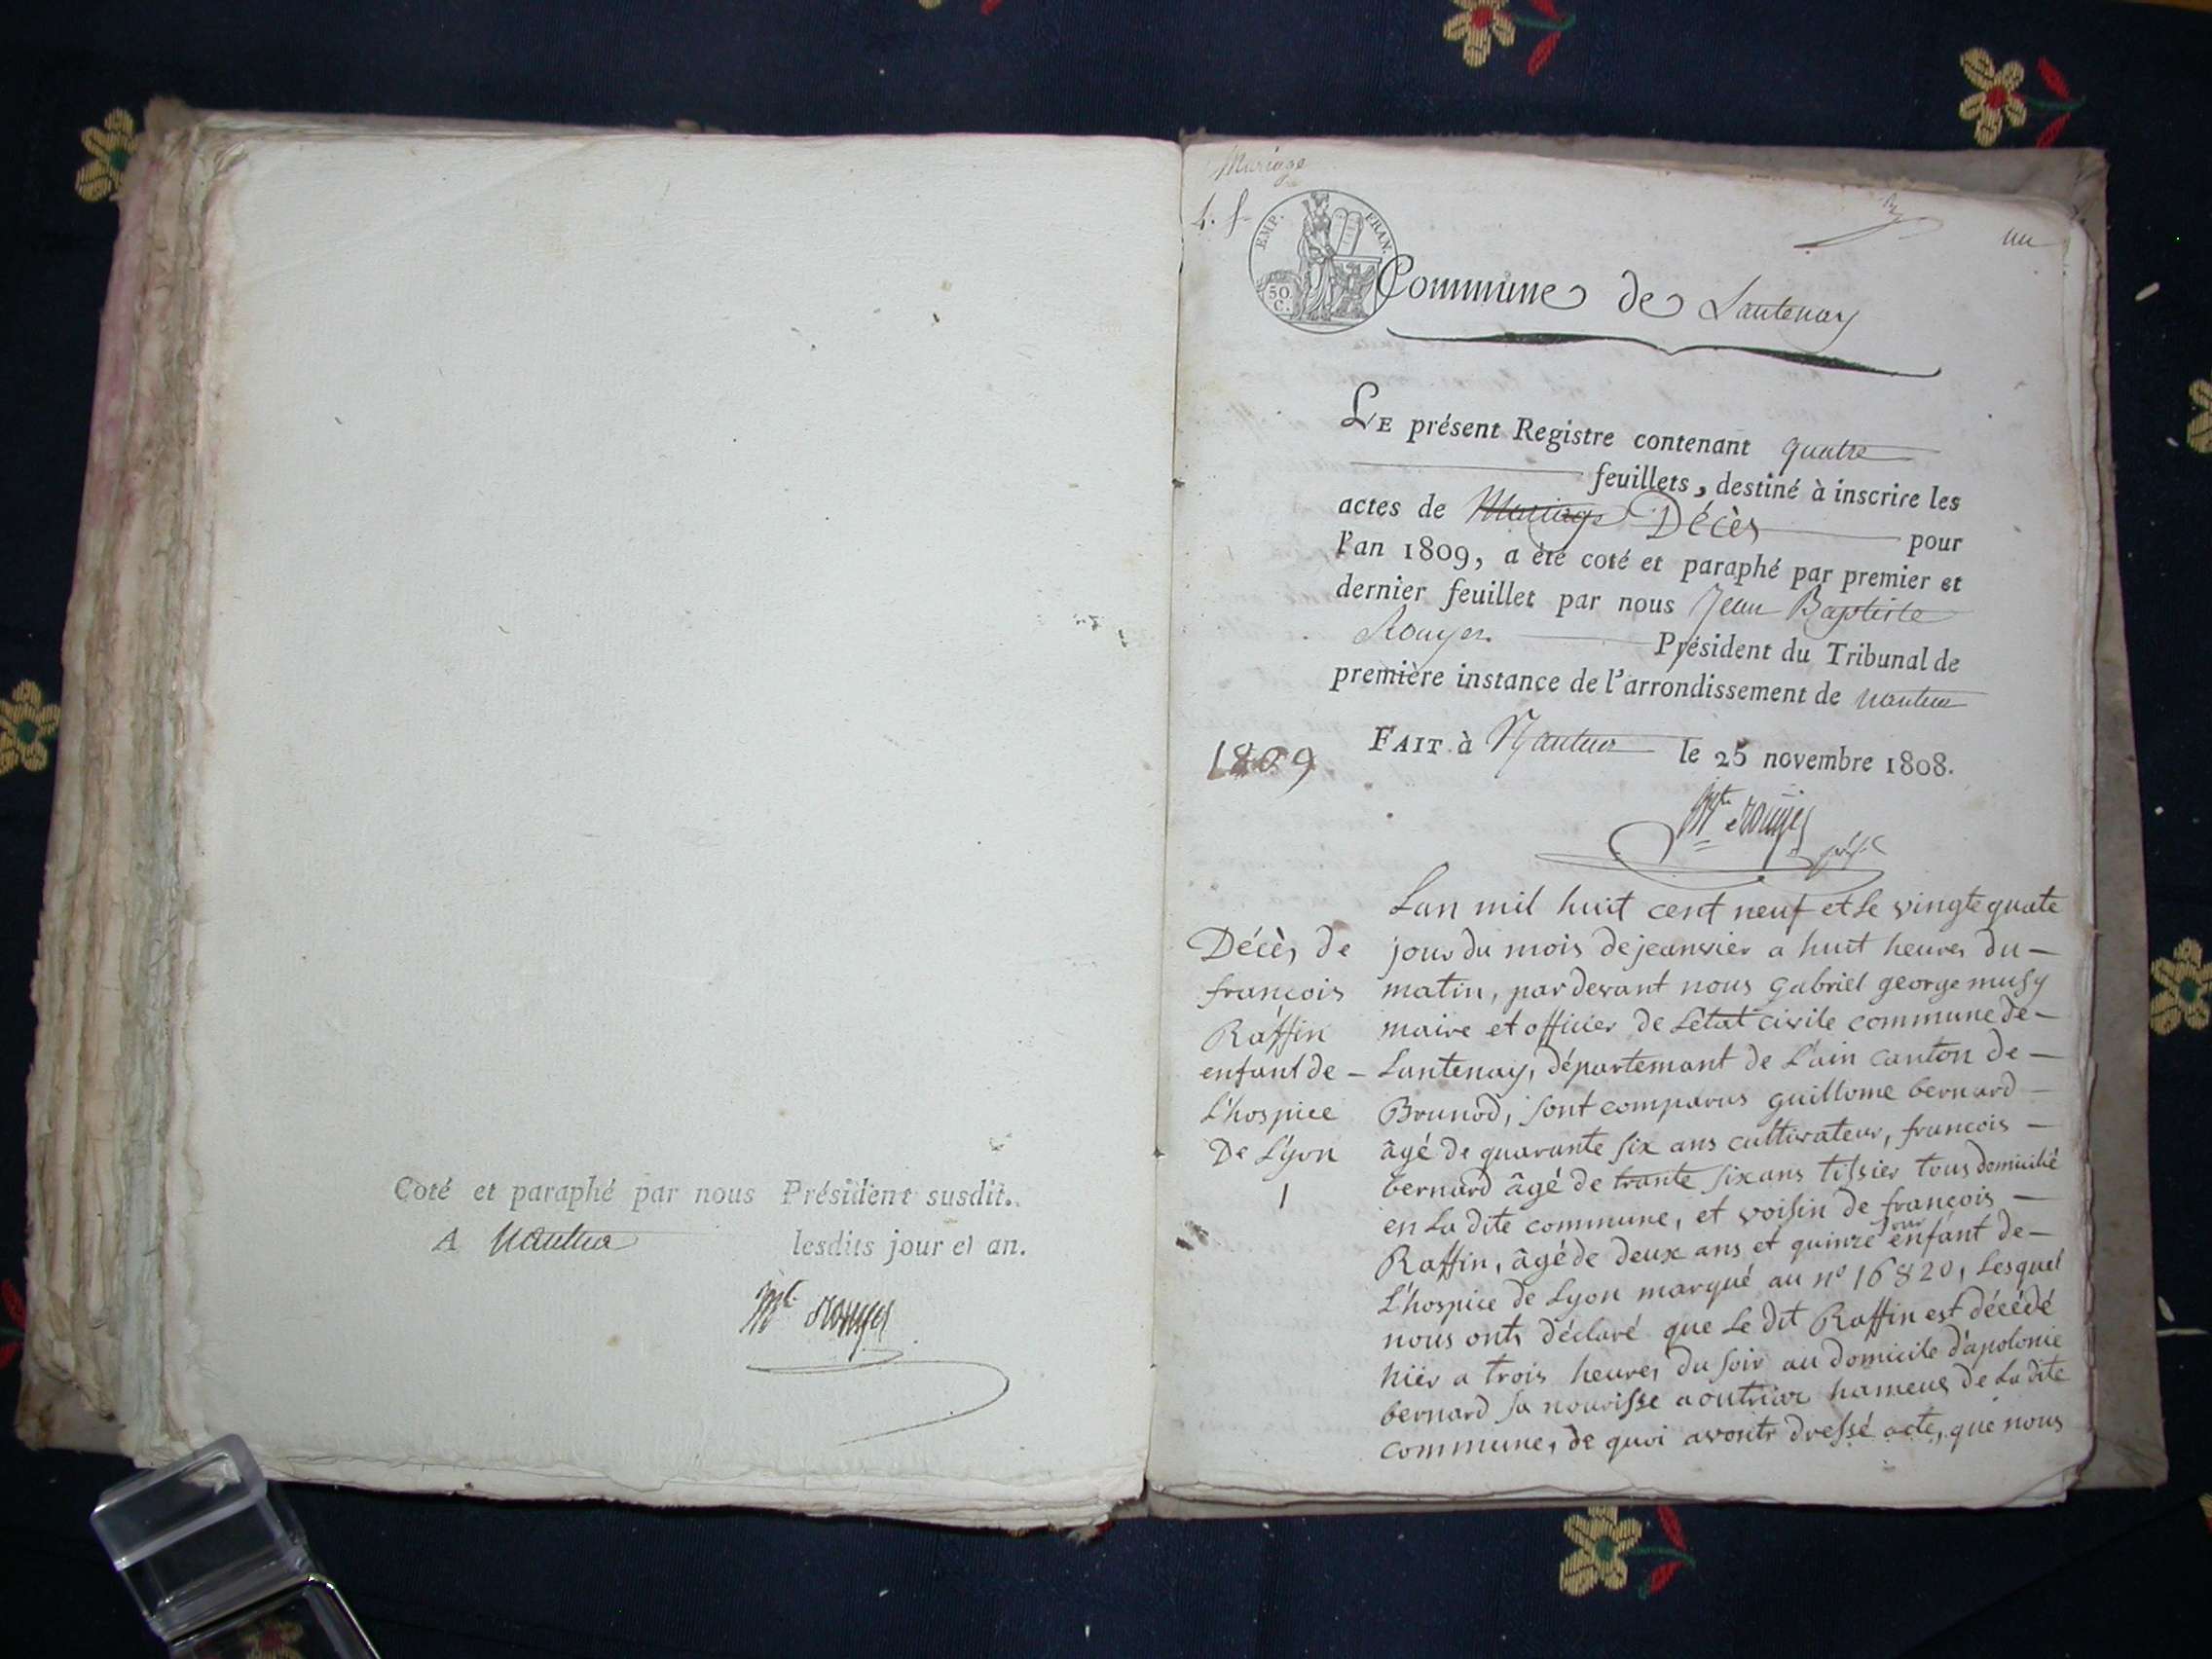 Coté et paraphé par nous Président susdit.
A Nantua lesdits jour et an.
Mariage
4. f.
un
EMP. FRAN.
50.
C.
Commune de Lantenay
LE présent Registre contenant quatre
feuillets, destiné à inscrire les
actes de Mariage Décès pour
l'an 1809, a été coté et paraphé par premier et
dernier feuillet par nous Jean Baptiste
Rouyer Président du Tribunal de
première instance de l'arrondissement de Nantua
FAIT à Nantua le 25 novembre 1808.
1809
Décès de
françois
Raffin
enfant de
L'hospice
De Lyon
1
Lan mil huit cent neuf et le vingte quate
jour du mois de jeanvier a huit heures du
matin, par devant nous gabriel george musy
maire et officier de Létat civile commune de
Lantenay, départemant de L'ain canton de
Brunod, sont comparus guillome bernard
âgé de quarante six ans cultivateur, francois
bernard âgé de trante six ans tissier tous domicilié
en La dite commune, et voisin de françois
Raffin, âgé de deux ans et quinze jour enfant de
L'hospice de Lyon marqué au no 16820, Lesquel
nous onts déclaré que Le dit Raffin est décédé
hier a trois heures du soir au domicile d'apolonie
bernard sa nourisse a outriar hameus de La dite
commune, de quoi avonts dressé acte, que nous